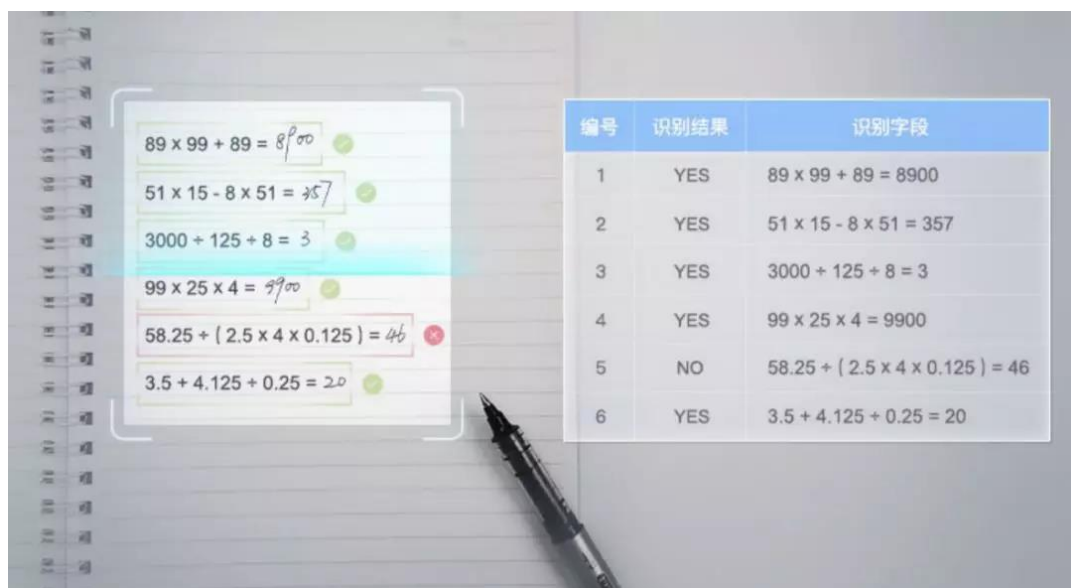 89 × 99 + 89 = 8900
51 × 15 - 8 × 51 = 357
3000 ÷ 125 ÷ 8 = 3
99 × 25 × 4 = 9900
58.25 ÷ ( 2.5 × 4 × 0.125 ) = 46
3.5 + 4.125 ÷ 0.25 = 20
编号 识别结果 识别字段
1 YES 89 × 99 + 89 = 8900
2 YES 51 × 15 - 8 × 51 = 357
3 YES 3000 ÷ 125 ÷ 8 = 3
4 YES 99 × 25 × 4 = 9900
5 NO 58.25 ÷ ( 2.5 × 4 × 0.125 ) = 46
6 YES 3.5 + 4.125 ÷ 0.25 = 20